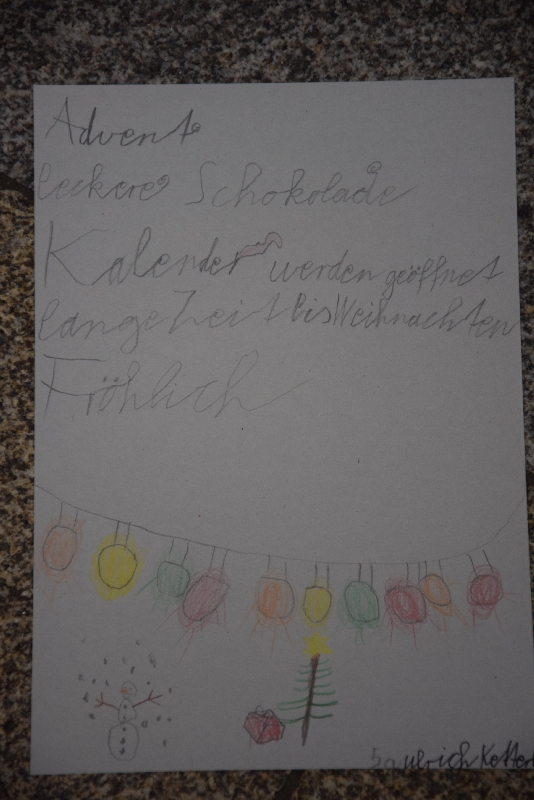 Advent
leckere Schokolade
Kalender werden geöffnet
lange Zeit bis Weihnachten
Fröhlich
5a Ulrich